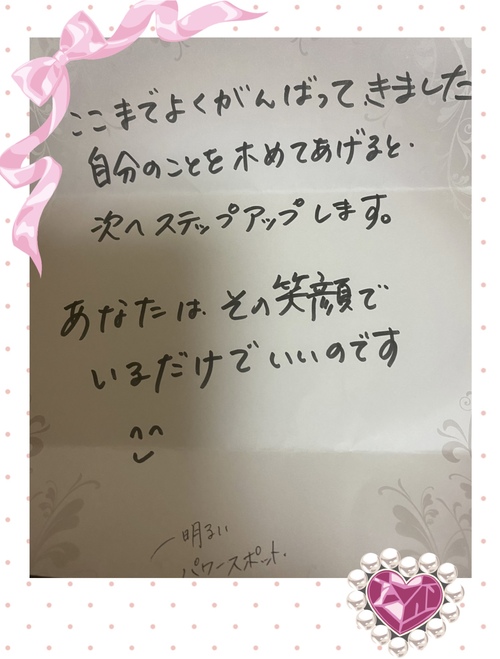 ここまでよくがんばってきました
自分のことをホめてあげると、
次へステップアップします。
あなたは、その笑顔で
いるだけでいいのです
明るい
パワースポット.